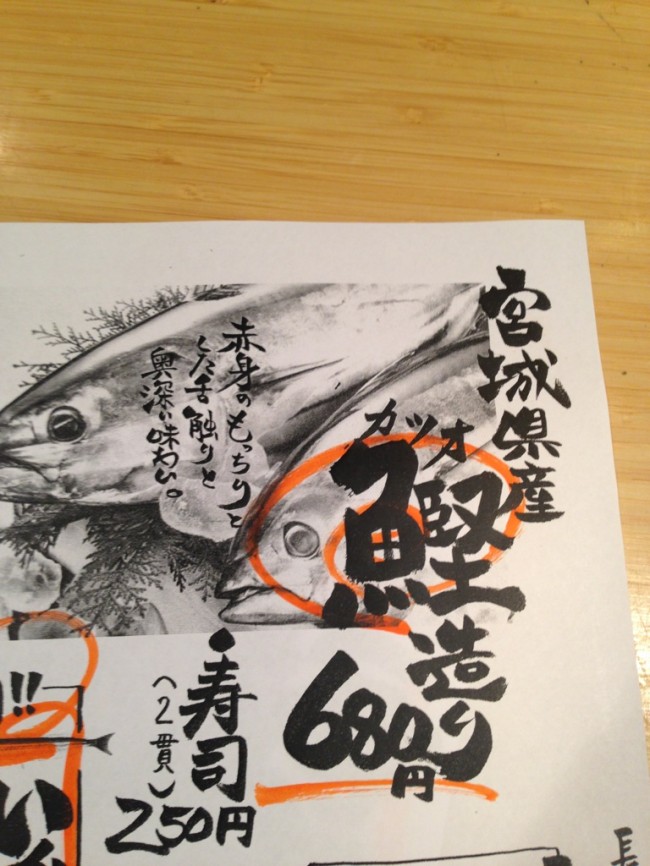 宮城県産
カツオ
鰹造り
680円
赤身のもっちりと
した舌触りと
奥深い味わい。
・寿司
(2貫)
250円
!!
い
長